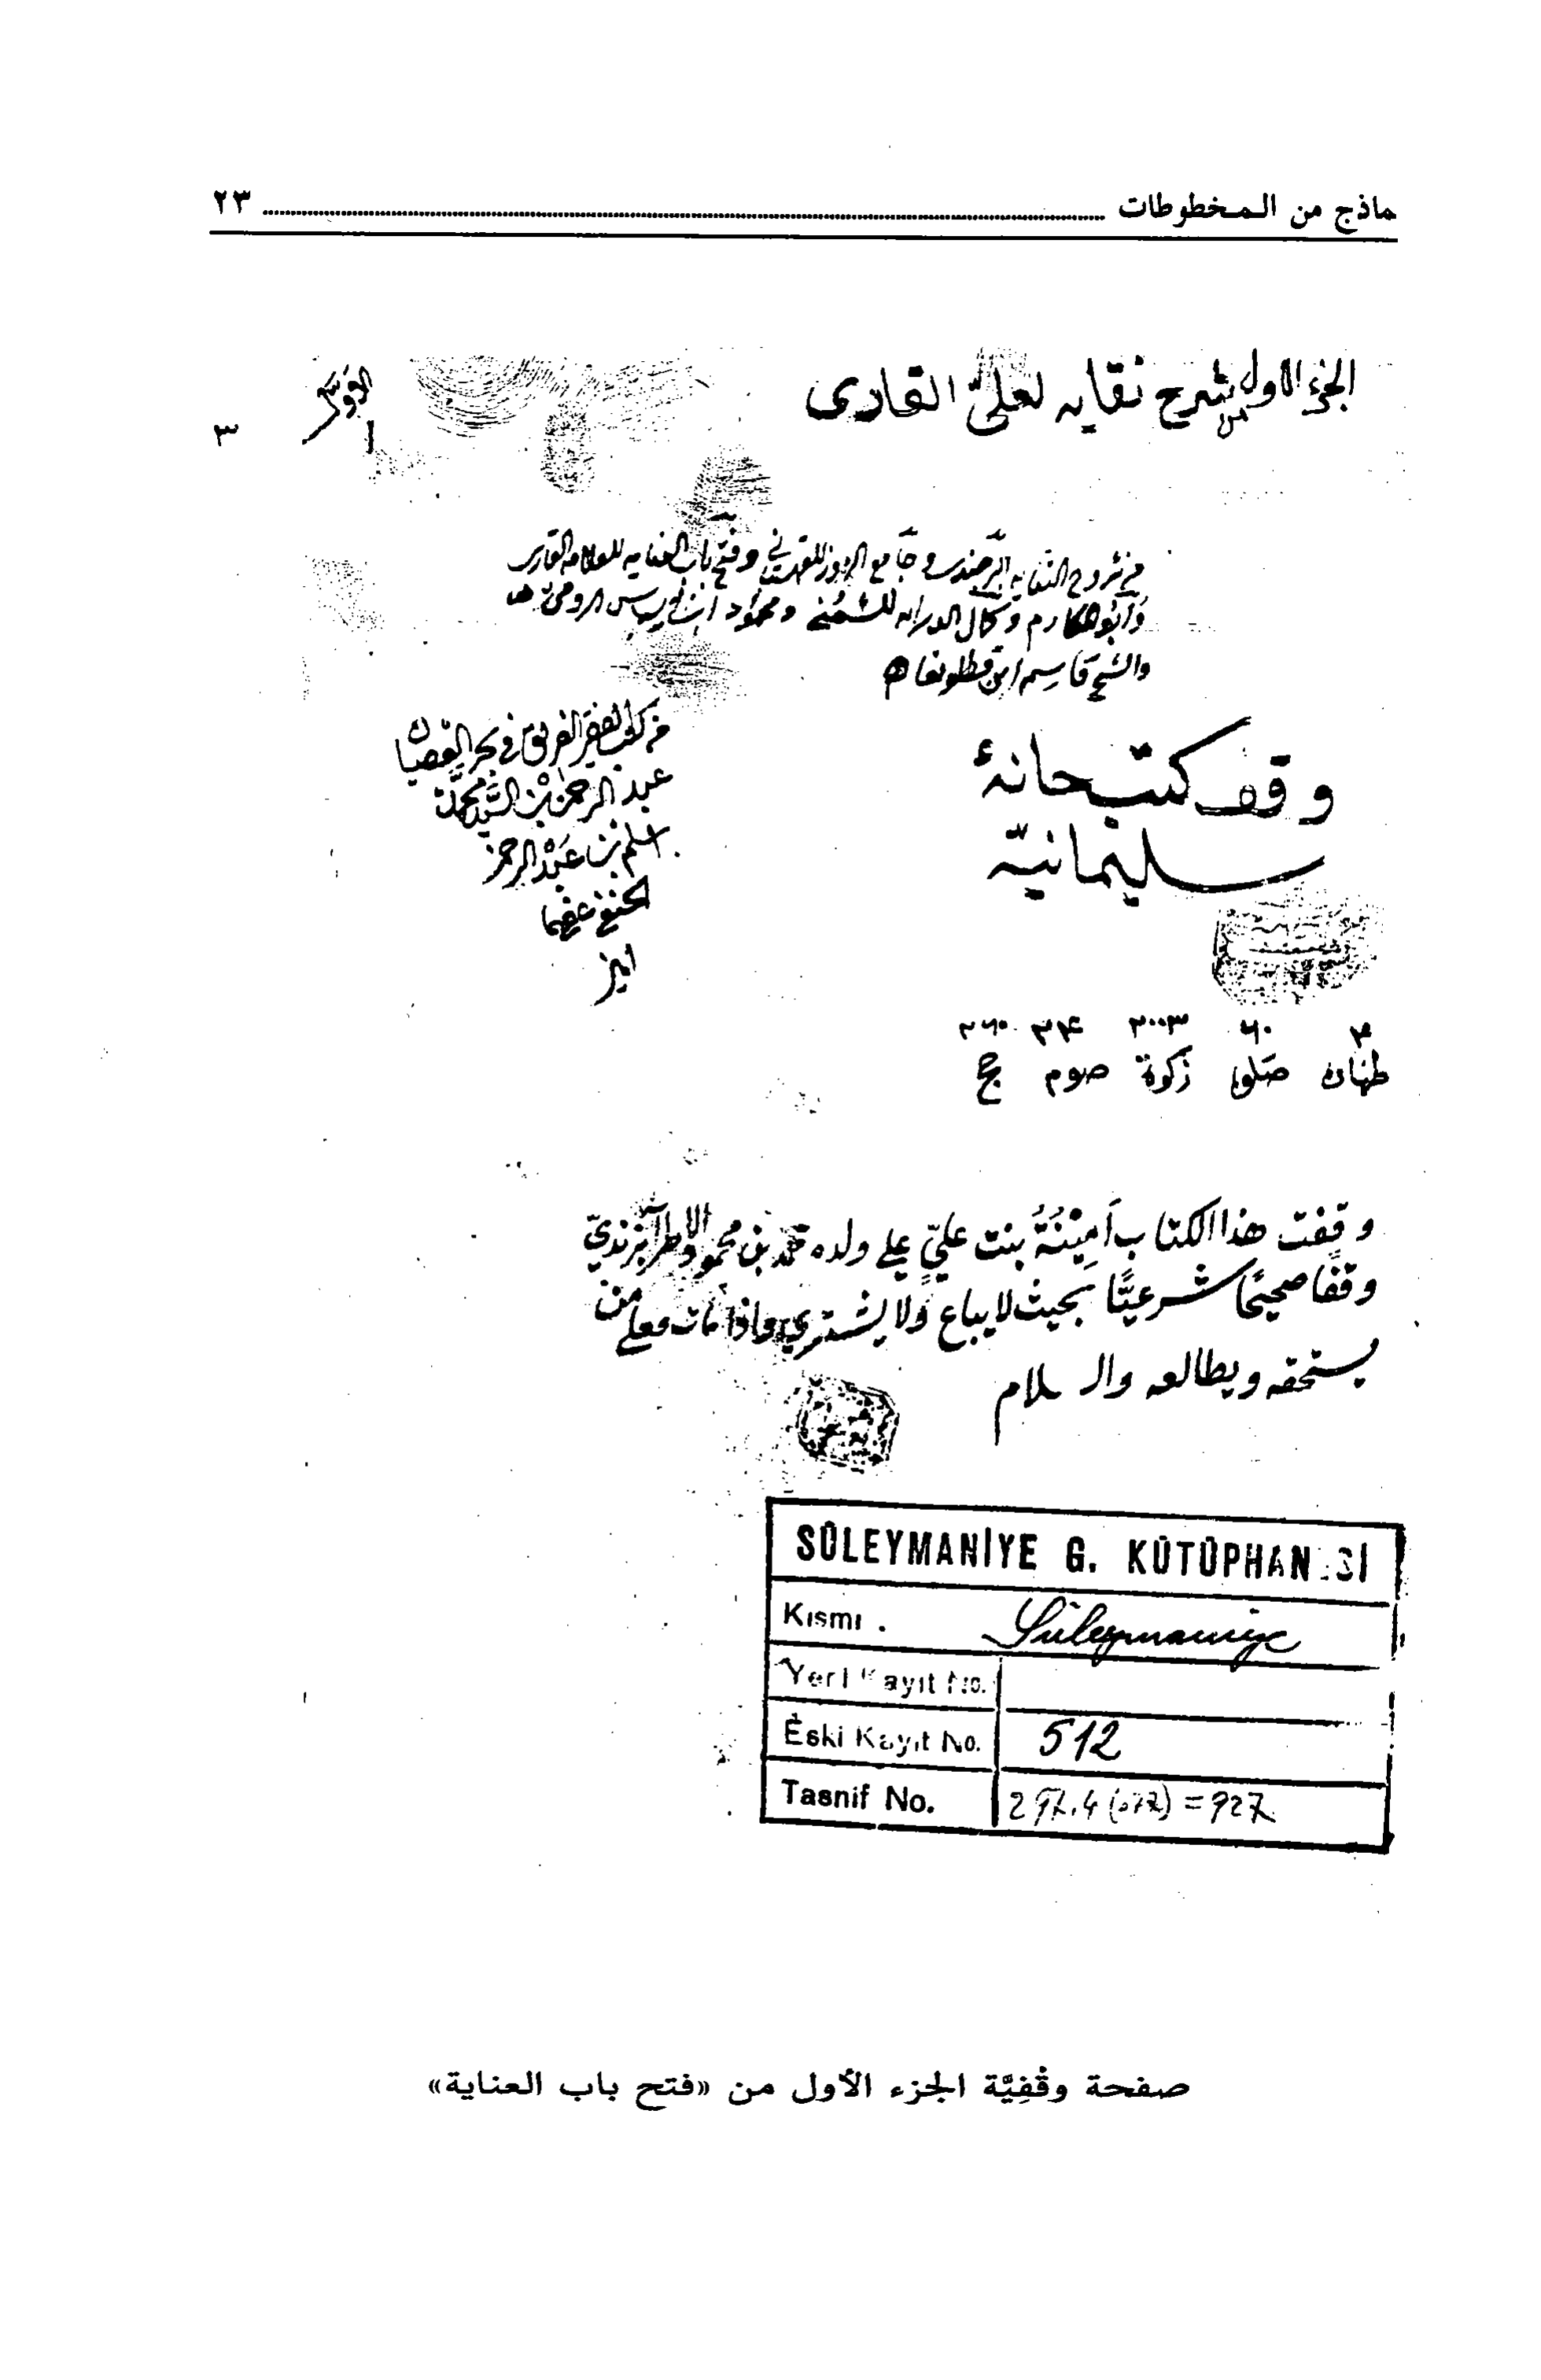 ماذج من المخطوطات ٢٣
الجزء الاول من شرح نقايه لعلىّ القارى
٣
من شروح النقايه البرجندى وجامع الرموز للقهستانى وفتح باب العنايه للعلامه القارى
وابو المكارم وكمال الدرايه للشمنى ومحمود ابن الياس الرومى
والشيخ قاسم ابن قطلوبغا
وقف كتبخانهٔ
سليمانيّه
من كتب الفقير الغريق فى بحر العصيان
عبد الرحمن بن السيد محمد
اسلم بن عبد الرحمن
الحنفى عفى عنهما
امين
٣ ٦٠ ٣٠٠٢ ٣٤ ٣٦٠
طهارة صلوة زكوة صوم حج
وقفت هذا الكتاب اَمِيْنَةُ بنت علىّ على ولده محمد بن محمود الاطرابزندىّ
وقفًا صحيحًا شرعيًّا بحيث لا يباع ولا يشترى واذا مات فعلى من
يستحقه ويطالعه والسلام
SÜLEYMANİYE G. KÜTÜPHANESİ
Kısmı . Süleymaniye
Yeni Kayıt No.
Eski Kayıt No. 512
Tasnif No. 297.4 (077) = 927
صفحة وقْفِيَّة الجزء الأول من «فتح باب العناية»